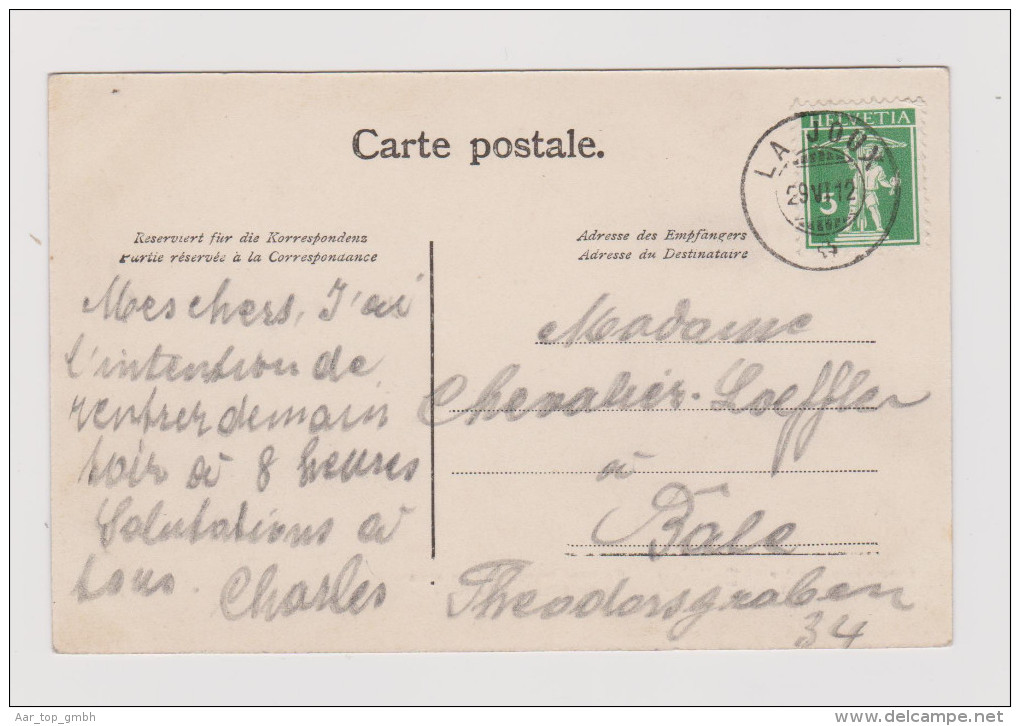 Carte postale.
HELVETIA
5
LA JOUX
29 VI 12
Reserviert für die Korrespondenz
Partie réservée à la Correspondance
Adresse des Empfängers
Adresse du Destinataire
Mes chers, J'ai
l'intention de
rentrer demain
soir à 8 heures
Salutations à
tous. Charles
Madame
Chevalier-Loeffler
à
Bâle
Theodorsgraben
34
Aar_top_gmbh
www.delcampe.net